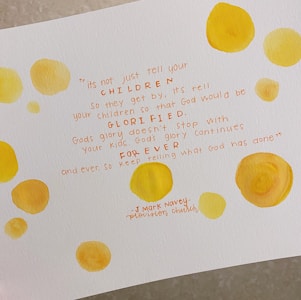 "its not just tell your
CHILDREN
so they get by, its tell
your children so that God would be
GLORIFIED.
God's glory doesn't stop with
your kids. God's glory continues
FOREVER
and ever. so keep telling what God has done"
-J Mark
church